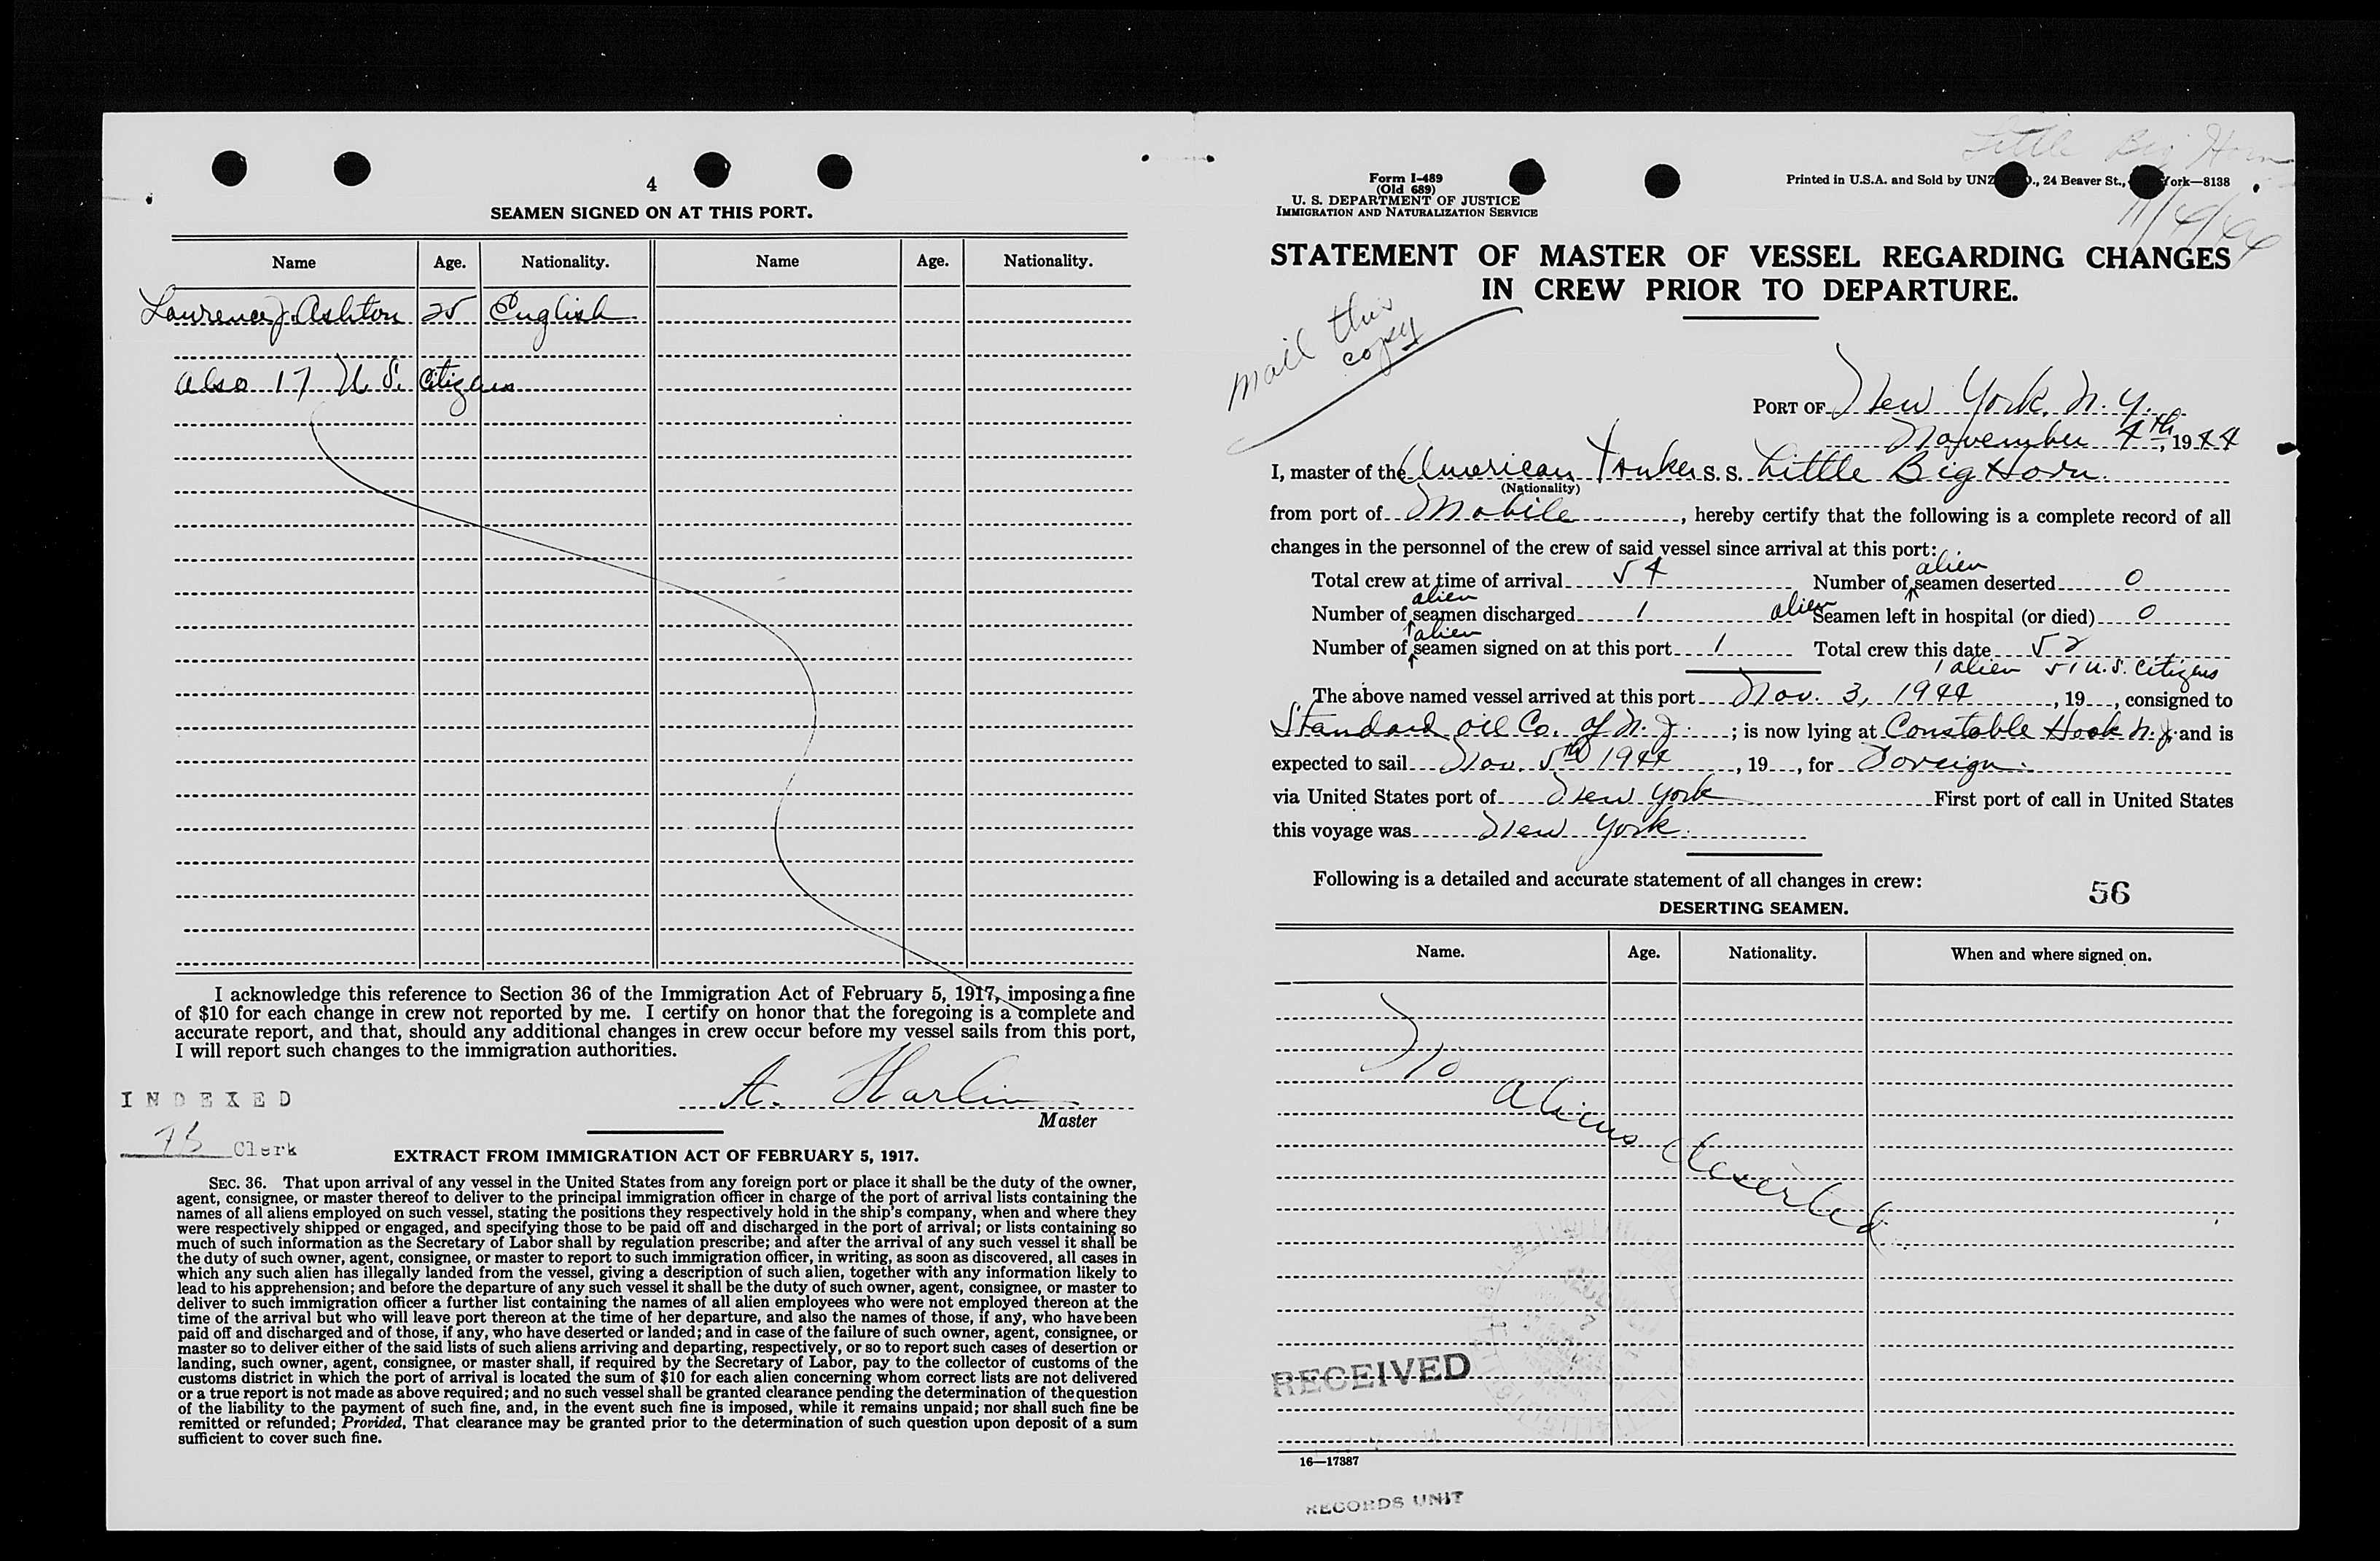 4
SEAMEN SIGNED ON AT THIS PORT.
Name Age. Nationality. Name Age. Nationality.
Lawrence J. Ashton 25 English
Also 17 U.S. Citizens
I acknowledge this reference to Section 36 of the Immigration Act of February 5, 1917, imposing a fine
of $10 for each change in crew not reported by me. I certify on honor that the foregoing is a complete and
accurate report, and that, should any additional changes in crew occur before my vessel sails from this port,
I will report such changes to the immigration authorities.
A. Harlin
Master
INDEXED
Clerk
EXTRACT FROM IMMIGRATION ACT OF FEBRUARY 5, 1917.
SEC. 36. That upon arrival of any vessel in the United States from any foreign port or place it shall be the duty of the owner,
agent, consignee, or master thereof to deliver to the principal immigration officer in charge of the port of arrival lists containing the
names of all aliens employed on such vessel, stating the positions they respectively hold in the ship's company, when and where they
were respectively shipped or engaged, and specifying those to be paid off and discharged in the port of arrival; or lists containing so
much of such information as the Secretary of Labor shall by regulation prescribe; and after the arrival of any such vessel it shall be
the duty of such owner, agent, consignee, or master to report to such immigration officer, in writing, as soon as discovered, all cases in
which any such alien has illegally landed from the vessel, giving a description of such alien, together with any information likely to
lead to his apprehension; and before the departure of any such vessel it shall be the duty of such owner, agent, consignee, or master to
deliver to such immigration officer a further list containing the names of all alien employees who were not employed thereon at the
time of the arrival but who will leave port thereon at the time of her departure, and also the names of those, if any, who have been
paid off and discharged and of those, if any, who have deserted or landed; and in case of the failure of such owner, agent, consignee, or
master so to deliver either of the said lists of such aliens arriving and departing, respectively, or so to report such cases of desertion or
landing, such owner, agent, consignee, or master shall, if required by the Secretary of Labor, pay to the collector of customs of the
customs district in which the port of arrival is located the sum of $10 for each alien concerning whom correct lists are not delivered
or a true report is not made as above required; and no such vessel shall be granted clearance pending the determination of the question
of the liability to the payment of such fine, and, in the event such fine is imposed, while it remains unpaid; nor shall such fine be
remitted or refunded; Provided, That clearance may be granted prior to the determination of such question upon deposit of a sum
sufficient to cover such fine.
Little Big Horn
11/4/44
Form I-489
(Old 689)
U. S. DEPARTMENT OF JUSTICE
IMMIGRATION AND NATURALIZATION SERVICE
Printed in U.S.A. and Sold by UNZ , 24 Beaver St., ork—8138
STATEMENT OF MASTER OF VESSEL REGARDING CHANGES
IN CREW PRIOR TO DEPARTURE.
mail this
copy
PORT OF New York, N.Y.
November 4th, 1944
I, master of the American Tanker S. S. Little Big Horn.
(Nationality)
from port of Mobile, hereby certify that the following is a complete record of all
changes in the personnel of the crew of said vessel since arrival at this port:
Total crew at time of arrival 54 Number of alien seamen deserted 0
Number of alien seamen discharged 1 alien Seamen left in hospital (or died) 0
Number of alien seamen signed on at this port 1 Total crew this date 52
1 alien 51 U.S. Citizens
The above named vessel arrived at this port Nov. 3, 1944, 19 , consigned to
Standard Oil Co. of N.J.; is now lying at Constable Hook N.J. and is
expected to sail Nov. 5th 1944, 19 , for Foreign.
via United States port of New York First port of call in United States
this voyage was New York.
Following is a detailed and accurate statement of all changes in crew:
56
DESERTING SEAMEN.
Name. Age. Nationality. When and where signed on.
No Aliens deserted
RECEIVED
16—17387
RECORDS UNIT